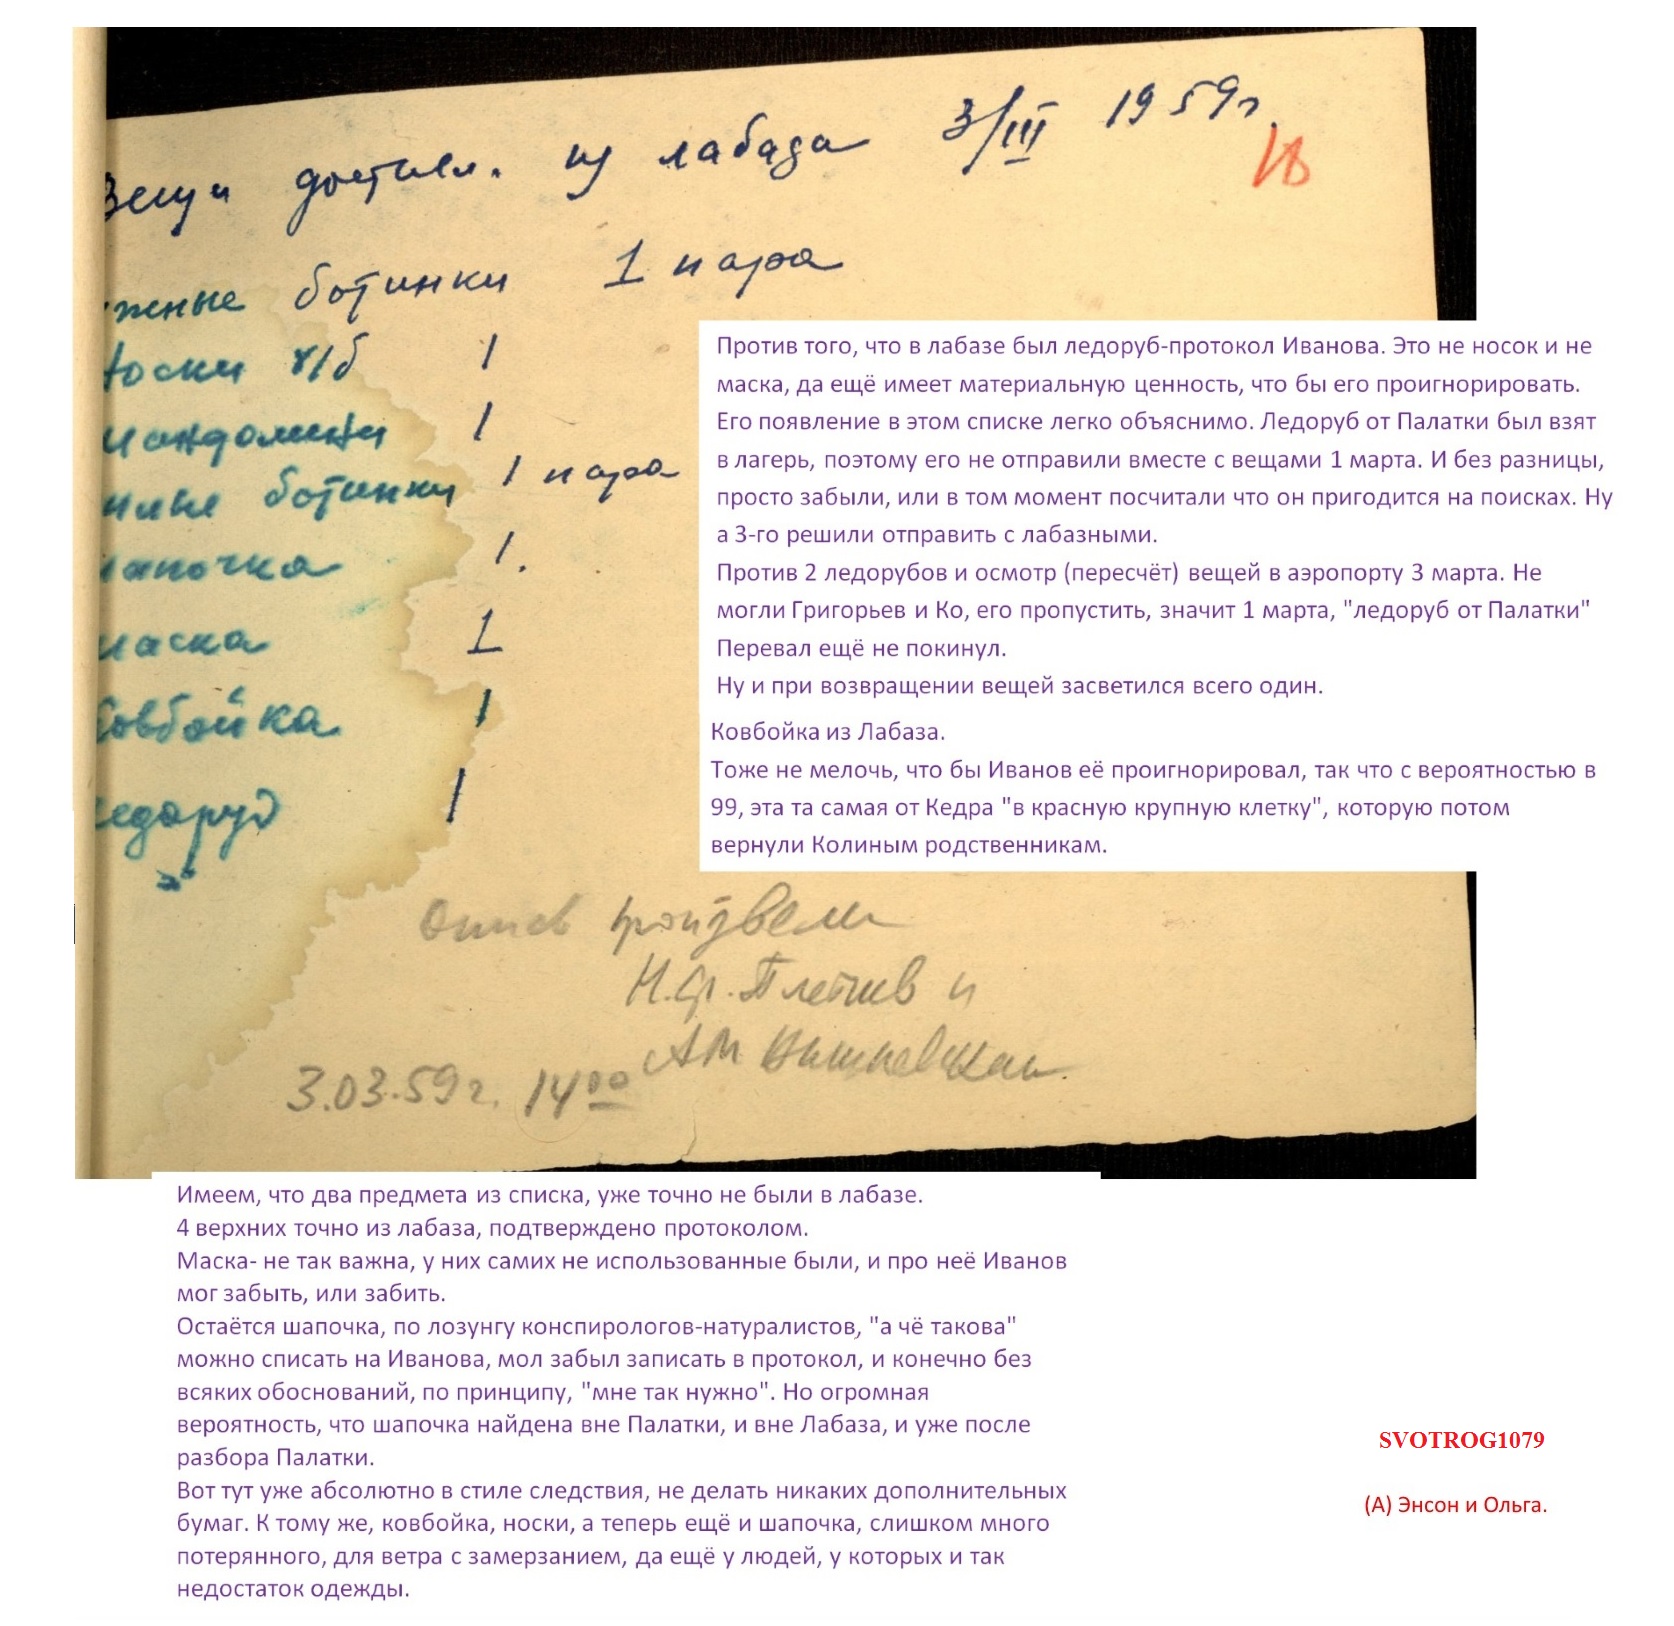 Вещи доставл. из лабаза 3/III 1959г.
жные ботинки 1 пара
Носки х/б 1
мандолина 1
ботинки 1 пара
шапочка 1.
маска 1
Ковбойка 1
ледоруб 1
Против того, что в лабазе был ледоруб-протокол Иванова. Это не носок и не
маска, да ещё имеет материальную ценность, что бы его проигнорировать.
Его появление в этом списке легко объяснимо. Ледоруб от Палатки был взят
в лагерь, поэтому его не отправили вместе с вещами 1 марта. И без разницы,
просто забыли, или в том момент посчитали что он пригодится на поисках. Ну
а 3-го решили отправить с лабазными.
Против 2 ледорубов и осмотр (пересчёт) вещей в аэропорту 3 марта. Не
могли Григорьев и Ко, его пропустить, значит 1 марта, "ледоруб от Палатки"
Перевал ещё не покинул.
Ну и при возвращении вещей засветился всего один.
Ковбойка из Лабаза.
Тоже не мелочь, что бы Иванов её проигнорировал, так что с вероятностью в
99, эта та самая от Кедра "в красную крупную клетку", которую потом
вернули Колиным родственникам.
Опись произвели
Н.Ф.
и
АМ
3.03.59г. 14 00
Имеем, что два предмета из списка, уже точно не были в лабазе.
4 верхних точно из лабаза, подтверждено протоколом.
Маска- не так важна, у них самих не использованные были, и про неё Иванов
мог забыть, или забить.
Остаётся шапочка, по лозунгу конспирологов-натуралистов, "а чё такова"
можно списать на Иванова, мол забыл записать в протокол, и конечно без
всяких обоснований, по принципу, "мне так нужно". Но огромная
вероятность, что шапочка найдена вне Палатки, и вне Лабаза, и уже после
разбора Палатки.
Вот тут уже абсолютно в стиле следствия, не делать никаких дополнительных
бумаг. К тому же, ковбойка, носки, а теперь ещё и шапочка, слишком много
потерянного, для ветра с замерзанием, да ещё у людей, у которых и так
недостаток одежды.
SVOTROG1079
(А) Энсон и Ольга.